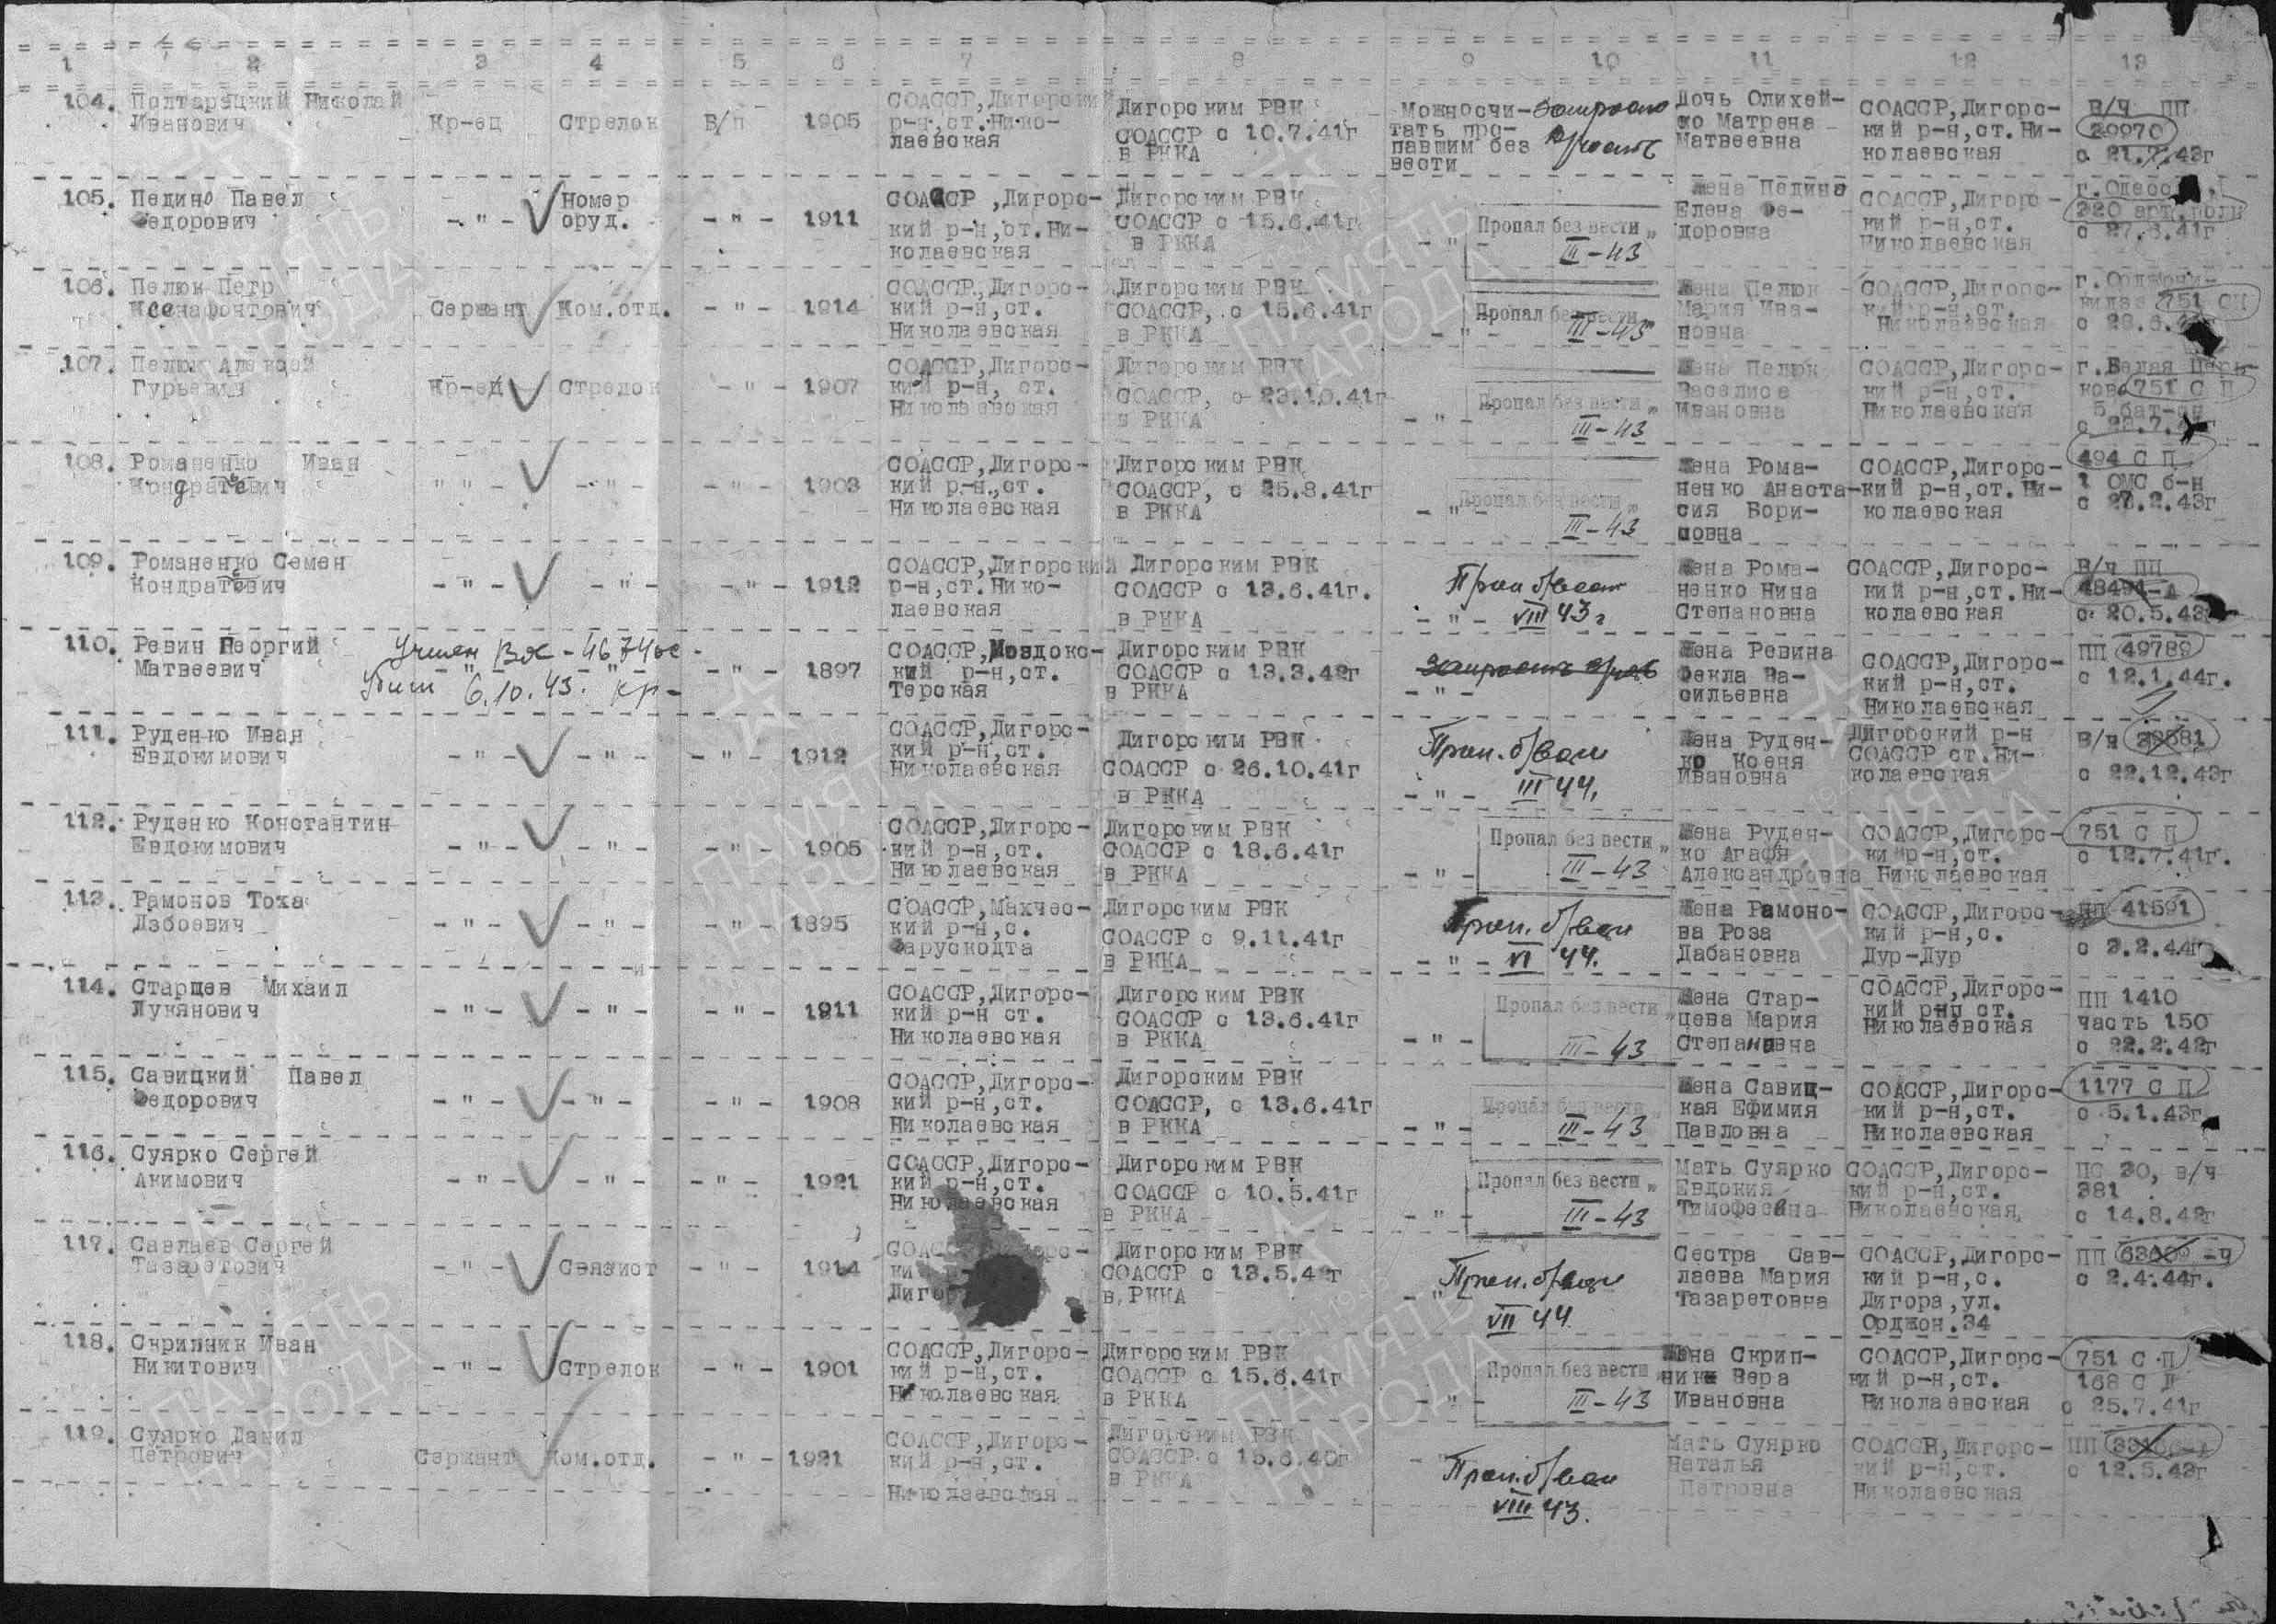 1 2 3 4 5 6 7 8 9 10 11 12 13
104. Полтарецкий Николай
Иванович
Кр-ец
Стрелок
Б/п
1905
СОАССР, Дигорский
р-н, ст. Нико-
лаевская
Дигорским РВК
СОАССР с 10.7.41г
в РККА
можносчи-
тать про-
павшим без
вести
Дочь Олихей-
ко Матрена
Матвеевна
СОАССР, Дигорс-
кий р-н, ст. Ни-
колаевская
В/ч ПП
39970
с 21.7.43г
105. Педино Павел
Федорович
- " -
Номер
оруд.
- " -
1911
СОАССР, Дигорс-
кий р-н, ст. Ни-
колаевская
Дигорским РВК
СОАССР с 15.6.41г
в РККА
- " -
Пропал без вести
III-43
Жена Педино
Елена Фе-
доровна
СОАССР, Дигорс-
кий р-н, ст.
Николаевская
г. Одесс
320 арт. полк
с 27.6.41г
106. Пелюк Петр
Ксенафонтович
Сержант
Ком. отд.
- " -
1914
СОАССР, Дигорс-
кий р-н, ст.
Николаевская
Дигорским РВК
СОАССР, с 15.6.41г
в РККА
- " -
Пропал без вести
III-43
Жена Пелюк
Мария Ива-
новна
СОАССР, Дигорс-
кий р-н, ст.
Николаевская
г. Орджони-
кидзе 751 СП
107. Пелюк Алексей
Гурьевич
Кр-ец
Стрелок
- " -
1907
СОАССР, Дигорс-
кий р-н, ст.
Николаевская
Дигорским РВК
СОАССР, с 23.10.41г
в РККА
- " -
Пропал без вести
III-43
Жена Пелюк
Василиса
Ивановна
СОАССР, Дигорс-
кий р-н, ст.
Николаевская
г. Белая Цер-
ков 751 С П
5 бат-он
108. Романенко Иван
Кондратевич
- " -
- " -
- " -
1903
СОАССР, Дигорс-
кий р-н., ст.
Николаевская
Дигорским РВК
СОАССР, с 25.8.41г
в РККА
- " -
Пропал без вести
III-43
Жена Рома-
ненко Анаста-
сия Бори-
совна
СОАССР, Дигорс-
кий р-н, ст. Ни-
колаевская
494 С П
1 ОМС б-н
109. Романенко Семен
Кондратевич
- " -
- " -
- " -
1912
СОАССР, Дигорский
р-н, ст. Нико-
лаевская
Дигорским РВК
СОАССР с 13.6.41г.
в РККА
- " -
Проп б/вест
VIII 43г
Жена Рома-
ненко Нина
Степановна
СОАССР, Дигорс-
кий р-н, ст. Ни-
колаевская
В/ч ПП
с 20.5.43
110. Ревин Георгий
Матвеевич
Учтен Вх-4674ос
Убит 6.10.43. кр-
- " -
1897
СОАССР, Моздокс-
кий р-н, ст.
Терская
Дигорским РВК
СОАССР с 13.3.42г
в РККА
- " -
Жена Ревина
Фекла Ва-
сильевна
СОАССР, Дигорс-
кий р-н, ст.
Николаевская
ПП 49789
с 12.1.44г.
111. Руденко Иван
Евдокимович
- " -
- " -
- " -
1912
СОАССР, Дигорс-
кий р-н, ст.
Николаевская
Дигорским РВК
СОАССР с 26.10.41г
в РККА
- " -
Проп. б/вест
III 44.
Жена Руден-
ко Ксеня
Ивановна
Дигорский р-н
СОАССР ст. Ни-
колаевская
В/ч
с 22.12.43г
112. Руденко Константин
Евдокимович
- " -
- " -
- " -
1905
СОАССР, Дигорс-
кий р-н, ст.
Николаевская
Дигорским РВК
СОАССР с 18.6.41г
в РККА
- " -
Пропал без вести
III-43
Жена Руден-
ко Агафя
Александровна
СОАССР, Дигорс-
ки р-н, ст.
Николаевская
751 С П
с 12.7.41г.
113. Рамонов Тоха
Дзбоевич
- " -
- " -
- " -
1895
СОАССР, Махчес-
кий р-н, с.
Фарускодта
Дигорским РВК
СОАССР с 9.11.41г
в РККА
- " -
Проп. б/вест
VI 44.
Жена Рамоно-
ва Роза
Дабановна
СОАССР, Дигорс-
кий р-н, с.
Дур-Дур
ПП 41591
с 2.2.44г
114. Старцев Михаил
Лукянович
- " -
- " -
- " -
1911
СОАССР, Дигорс-
кий р-н ст.
Николаевская
Дигорским РВК
СОАССР с 13.6.41г
в РККА
- " -
Пропал без вести
III-43
Жена Стар-
цева Мария
Степановна
СОАССР, Дигорс-
кий рнп ст.
Николаевская
ПП 1410
часть 150
с 22.2.42г
115. Савицкий Павел
Федорович
- " -
- " -
- " -
1908
СОАССР, Дигорс-
кий р-н, ст.
Николаевская
Дигорским РВК
СОАССР, с 13.6.41г
в РККА
- " -
Пропал без вести
III-43
Жена Савиц-
кая Ефимия
Павловна
СОАССР, Дигорс-
кий р-н, ст.
Николаевская
1177 С П
с 5.1.43г
116. Суярко Сергей
Акимович
- " -
- " -
- " -
1921
СОАССР, Дигорс-
кий р-н, ст.
Николаевская
Дигорским РВК
СОАССР с 10.5.41г
в РККА
- " -
Пропал без вести
III-43
Мать Суярко
Евдокия
Тимофеевна
СОАССР, Дигорс-
кий р-н, ст.
Николаевская
ПС 30, в/ч
381
с 14.8.42г
117. Савлаев Сергей
Тазаретович
- " -
Связист
- " -
1914
Дигорским РВК
СОАССР с 13.5.42г
в РККА
Проп. б/вест
VII 44
Сестра Сав-
лаева Мария
Тазаретовна
СОАССР, Дигорс-
кий р-н, с.
Дигора, ул.
Орджон. 34
ПП
с 2.4.44г.
118. Скрипник Иван
Никитович
- " -
Стрелок
- " -
1901
СОАССР, Дигорс-
кий р-н, ст.
Николаевская
Дигорским РВК
СОАССР с 15.6.41г
в РККА
- " -
Пропал без вести
III-43
Жена Скрип-
ник Вера
Ивановна
СОАССР, Дигорс-
кий р-н, ст.
Николаевская
751 С П
168 С Д
с 25.7.41г
119. Суярко Данил
Петрович
Сержант
Ком. отд.
- " -
1921
СОАССР, Дигорс-
кий р-н, ст.
Николаевская
Дигорским РВК
СОАССР с 15.6.40г
в РККА
Проп. б/вест
VIII 43.
Мать Суярко
Наталья
Петровна
СОАССР, Дигорс-
кий р-н, ст.
Николаевская
ПП
с 12.5.43г
ПАМЯТЬ
НАРОДА